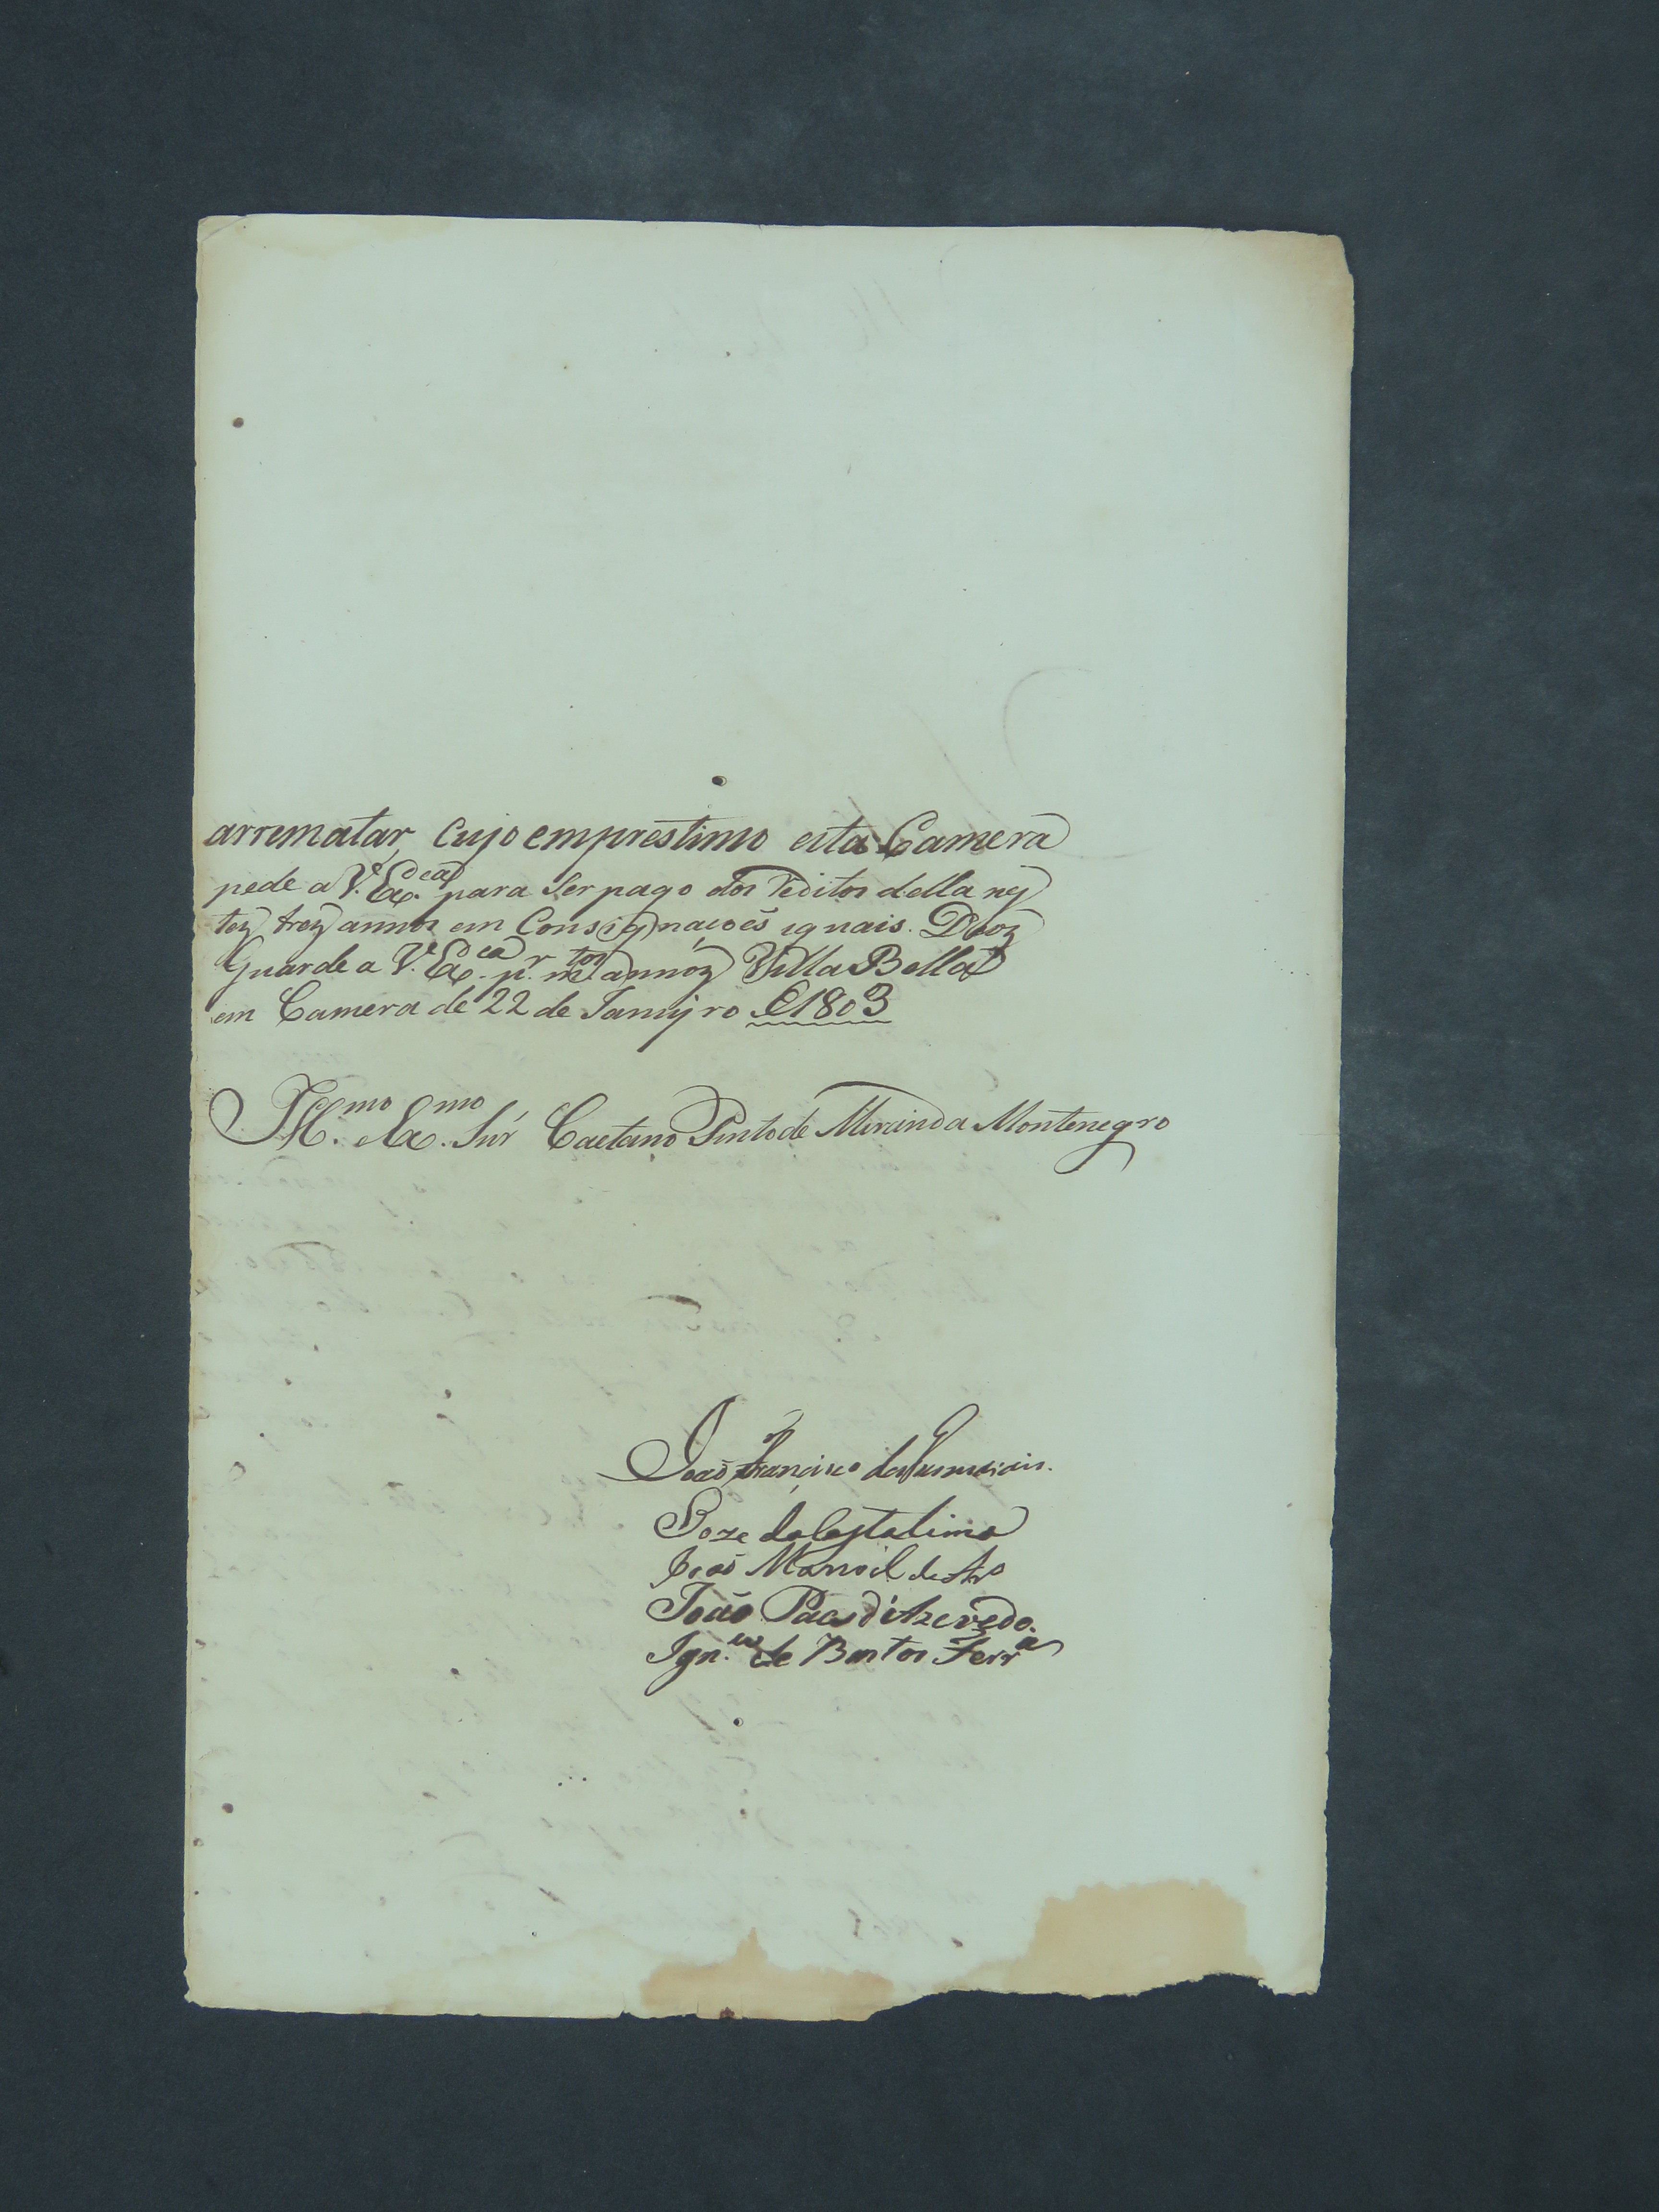 arrematar, cujo emprestimo esta Camera
pede a V. Ex.cia para ser pago dos reditos della nes
tes tres annos em Consignaçoẽs iguais. Deos
Guarde a V. Ex.cia p.r m.tos annos Villa Bella
em Camera de 22 de Janeyro de 1803
Ill.mo e Ex.mo Snr̃ Caetano Pinto de Miranda Montenegro
Joaõ Francisco
Joze da Costa Lima
Joaõ Manoel de
João Paes d'Azevedo.
Ign.co de Bastos Ferr.a